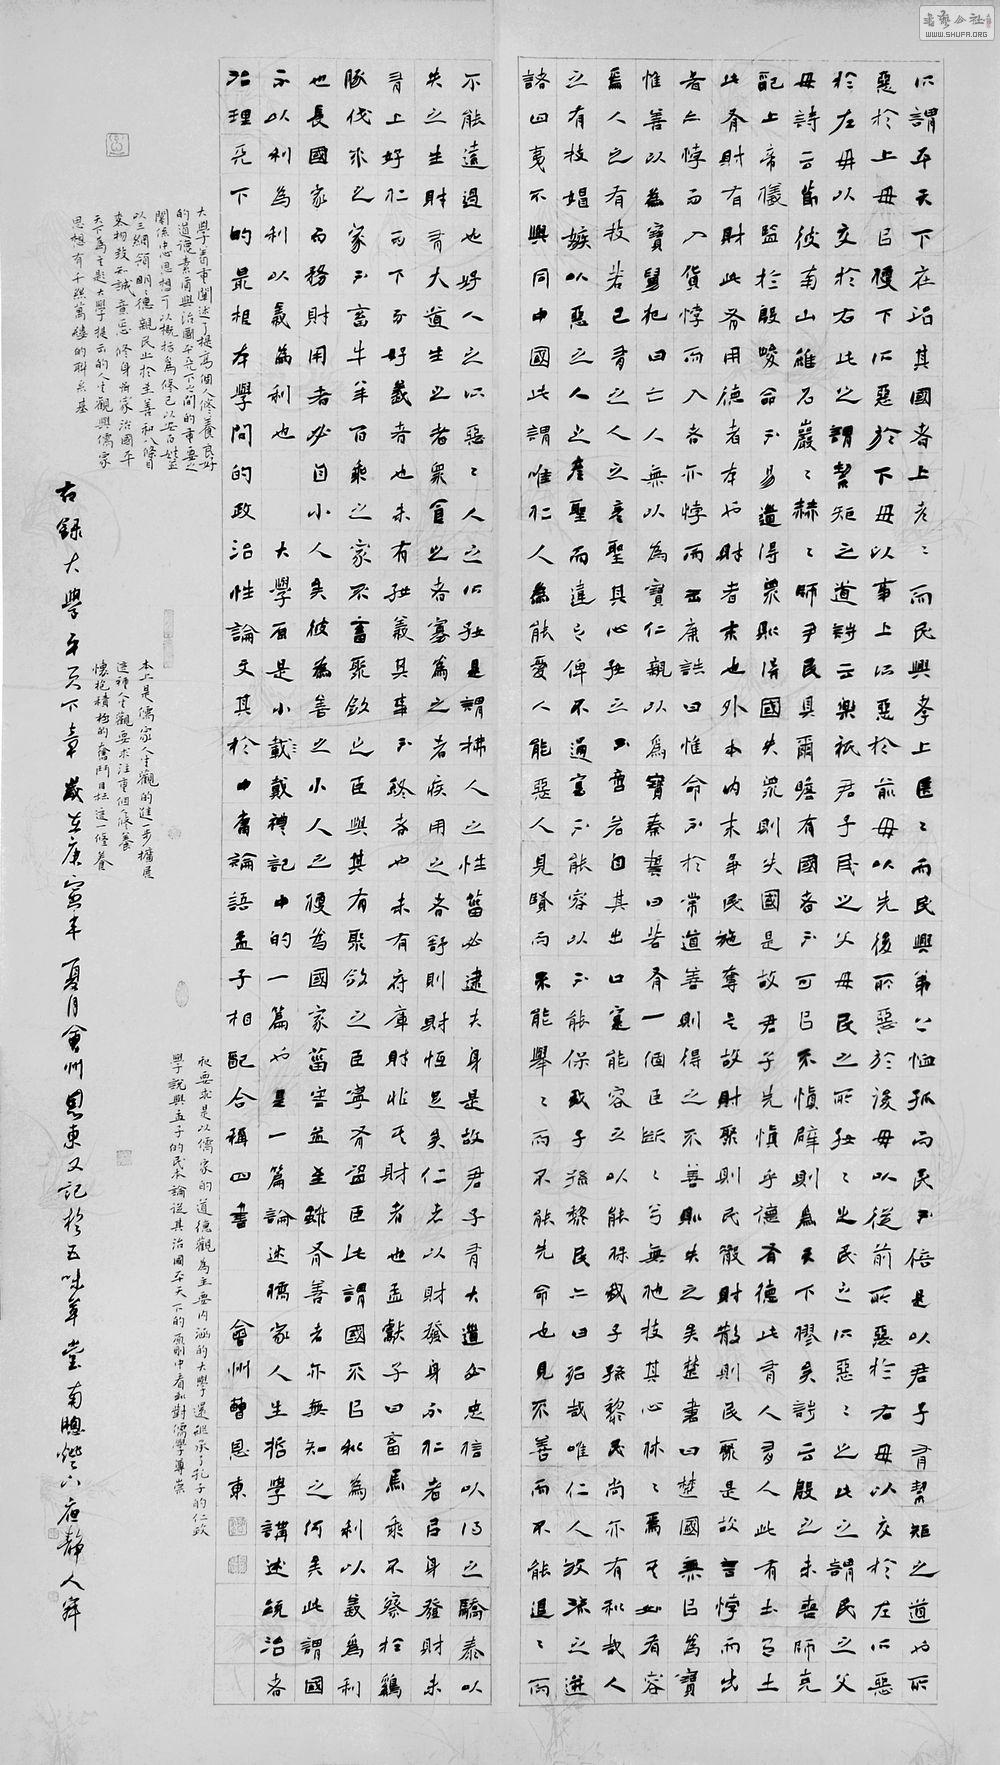 所謂平天下在治其國者上老〻而民興孝上長〻而民興弟上恤孤而民不倍是以君子有絜矩之道也所
惡於上毋以使下所惡於下毋以事上所惡於前毋以先後所惡於後毋以從前所惡於右毋以交於左所惡
於左毋以交於右此之謂絜矩之道詩云樂衹君子民之父母民之所好〻之民之所惡〻之此之謂民之父
母詩云節彼南山維石巖〻赫〻師尹民具爾瞻有國者不可以不慎辟則為天下僇矣詩云殷之未喪師克
配上帝儀監於殷峻命不易道得眾則得國失眾則失國是故君子先慎乎德有德此有人有人此有土有土
此有財有財此有用德者本也財者末也外本內末爭民施奪是故財聚則民散財散則民聚是故言悖而出
者亦悖而入貨悖而入者亦悖而出康誥曰惟命不於常道善則得之不善則失之矣楚書曰楚國無以為寶
惟善以為寶舅犯曰亡人無以為寶仁親以為寶秦誓曰若有一個臣斷〻兮無他技其心休〻焉其如有容
焉人之有技若己有之人之彥聖其心好之不啻若自其出口寔能容之以能保我子孫黎民尚亦有利哉人
之有技媢嫉以惡之人之彥聖而違之俾不通寔不能容以不能保我子孫黎民亦曰殆哉唯仁人放流之迸
諸四夷不與同中國此謂唯仁人為能愛人能惡人見賢而不能舉〻而不能先命也見不善而不能退〻而
不能遠過也好人之所惡〻人之所好是謂拂人之性菑必逮夫身是故君子有大道必忠信以得之驕泰以
失之生財有大道生之者眾食之者寡為之者疾用之者舒則財恒足矣仁者以財發身不仁者以身發財未
有上好仁而下不好義者也未有好義其事不終者也未有府庫財非其財者也孟獻子曰畜馬乘不察於雞
豚伐冰之家不畜牛羊百乘之家不畜聚斂之臣與其有聚斂之臣寧有盜臣此謂國不以利為利以義為利
也長國家而務財用者必自小人矣彼為善之小人之使為國家菑害並至雖有善者亦無如之何矣此謂國
不以利為利以義為利也 大學原是小戴戴禮記中的一篇也是一篇論述儒家人生哲學講述統治者
治理天下的最根本學問的政治性論文其於中庸論語孟子相配合稱四書 會州曹恩東
大學著重闡述了提高個人修養良好
的道德素質與治國平天下之間的重要之
關係中心思想可以概括為修己以安百姓並
以三綱領明明德親民止於至善和八條目
格物致知誠意正心修身齊家治國平
天下為主題大學提示的人生觀與儒家
思想有千絲萬縷的聯系基
本上是儒家人生觀的進一步擴展
這種人生觀要求注重個人修養
懷抱積極的奮鬥目標這一修養
和要求是以儒家的道德觀為主要內涵的大學還繼承了孔子的仁政
學說與孟子的民本論從其治國平天下的原則中看出對儒學尊崇
右錄大學平天下章歲在庚寅年夏月會州恩東又記於五味草堂南窗燈下夜靜人寐
書藝公社
WWW.SHUFA.ORG